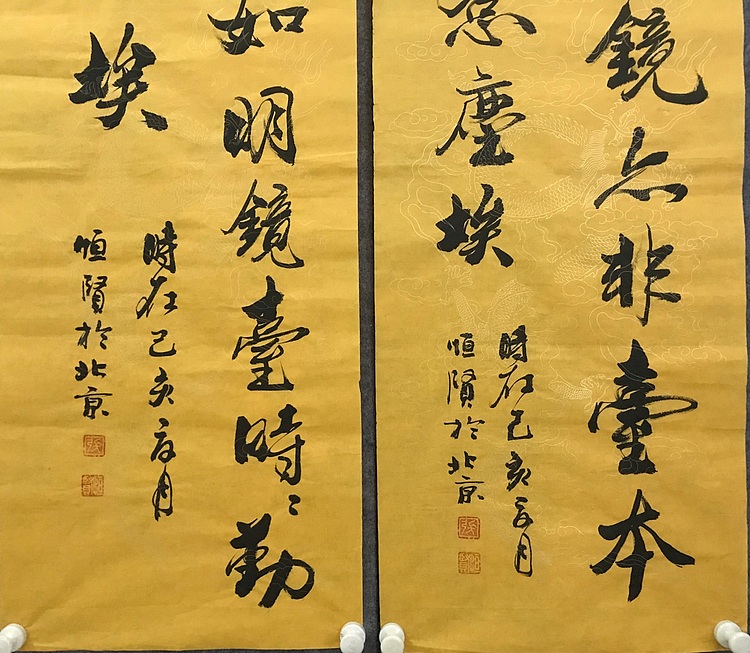 鏡亦非臺本
惹塵埃
時在己亥夏月
恒賢於北京
如明鏡臺時〻勤
埃
時在己亥夏月
恒賢於北京